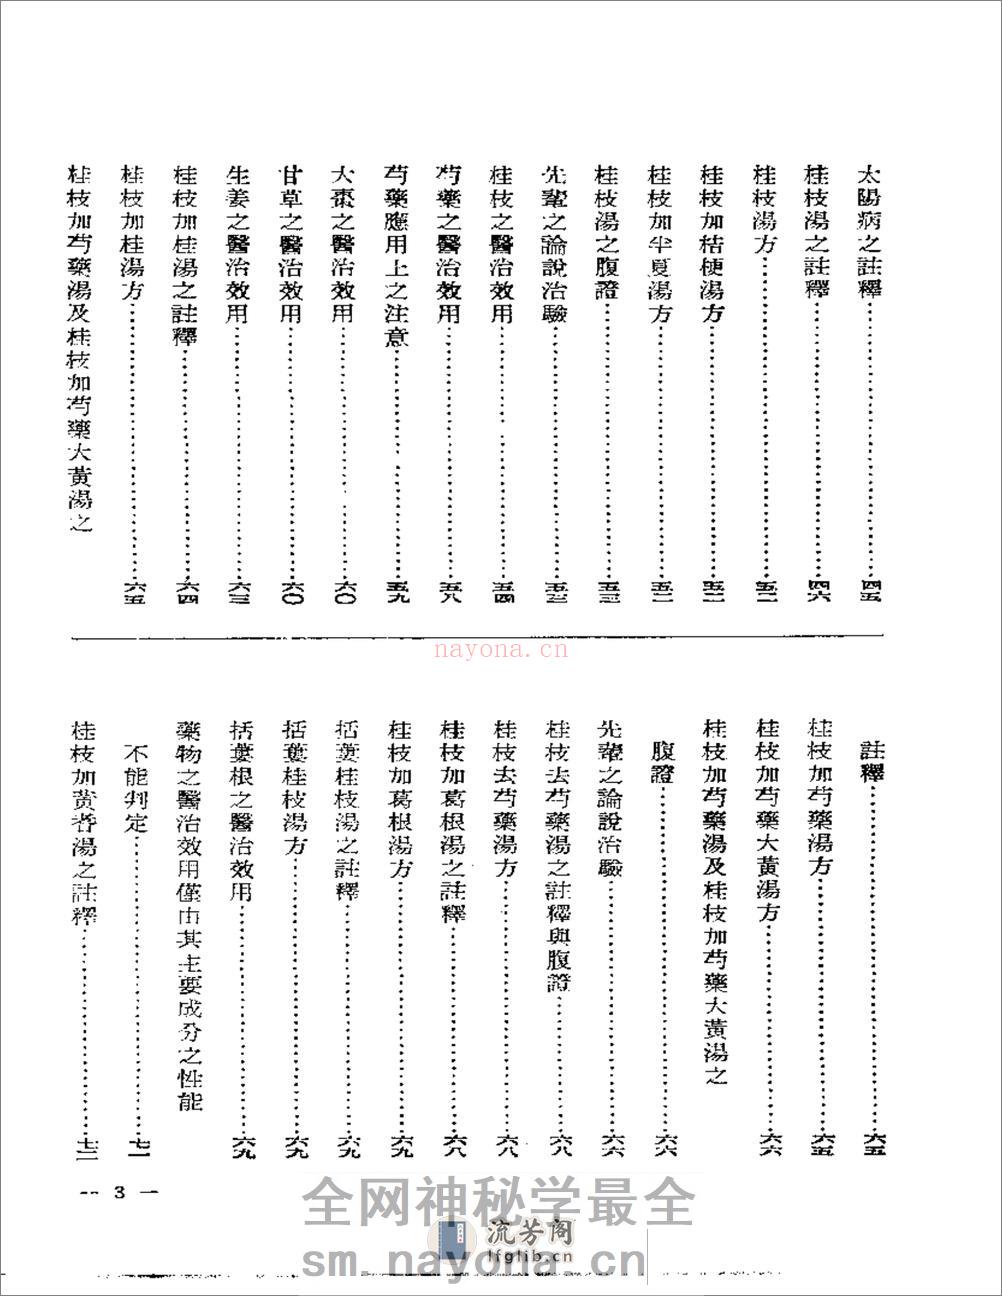 太陽病之註釋……四五
桂枝湯之註釋……四六
桂枝湯方……五二
桂枝加桔梗湯方……五二
桂枝加半夏湯方……五二
桂枝湯之腹證……五三
先輩之論說治驗……五三
桂枝之醫治效用……五四
芍藥之醫治效用……五八
芍藥應用上之注意……五九
大棗之醫治效用……六〇
甘草之醫治效用……六〇
生姜之醫治效用……六三
桂枝加桂湯之註釋……六四
桂枝加桂湯方……六五
桂枝加芍藥湯及桂枝加芍藥大黃湯之
註釋……六五
桂枝加芍藥湯方……六五
桂枝加芍藥大黃湯方……六六
桂枝加芍藥湯及桂枝加芍藥大黃湯之
腹證……六六
先輩之論說治驗……六六
桂枝去芍藥湯之註釋與腹證……六八
桂枝去芍藥湯方……六八
桂枝加葛根湯之註釋……六八
桂枝加葛根湯方……六九
括蔞桂枝湯之註釋……六九
括蔞桂枝湯方……六九
括蔞根之醫治效用……六九
藥物之醫治效用僅由其主要成分之性能
不能判定……七一
桂枝加黃耆湯之註釋……七二
— 3 —
nayona.cn
全网神秘学最全
流芳阁
lfglib.cn
sm.nayona.cn